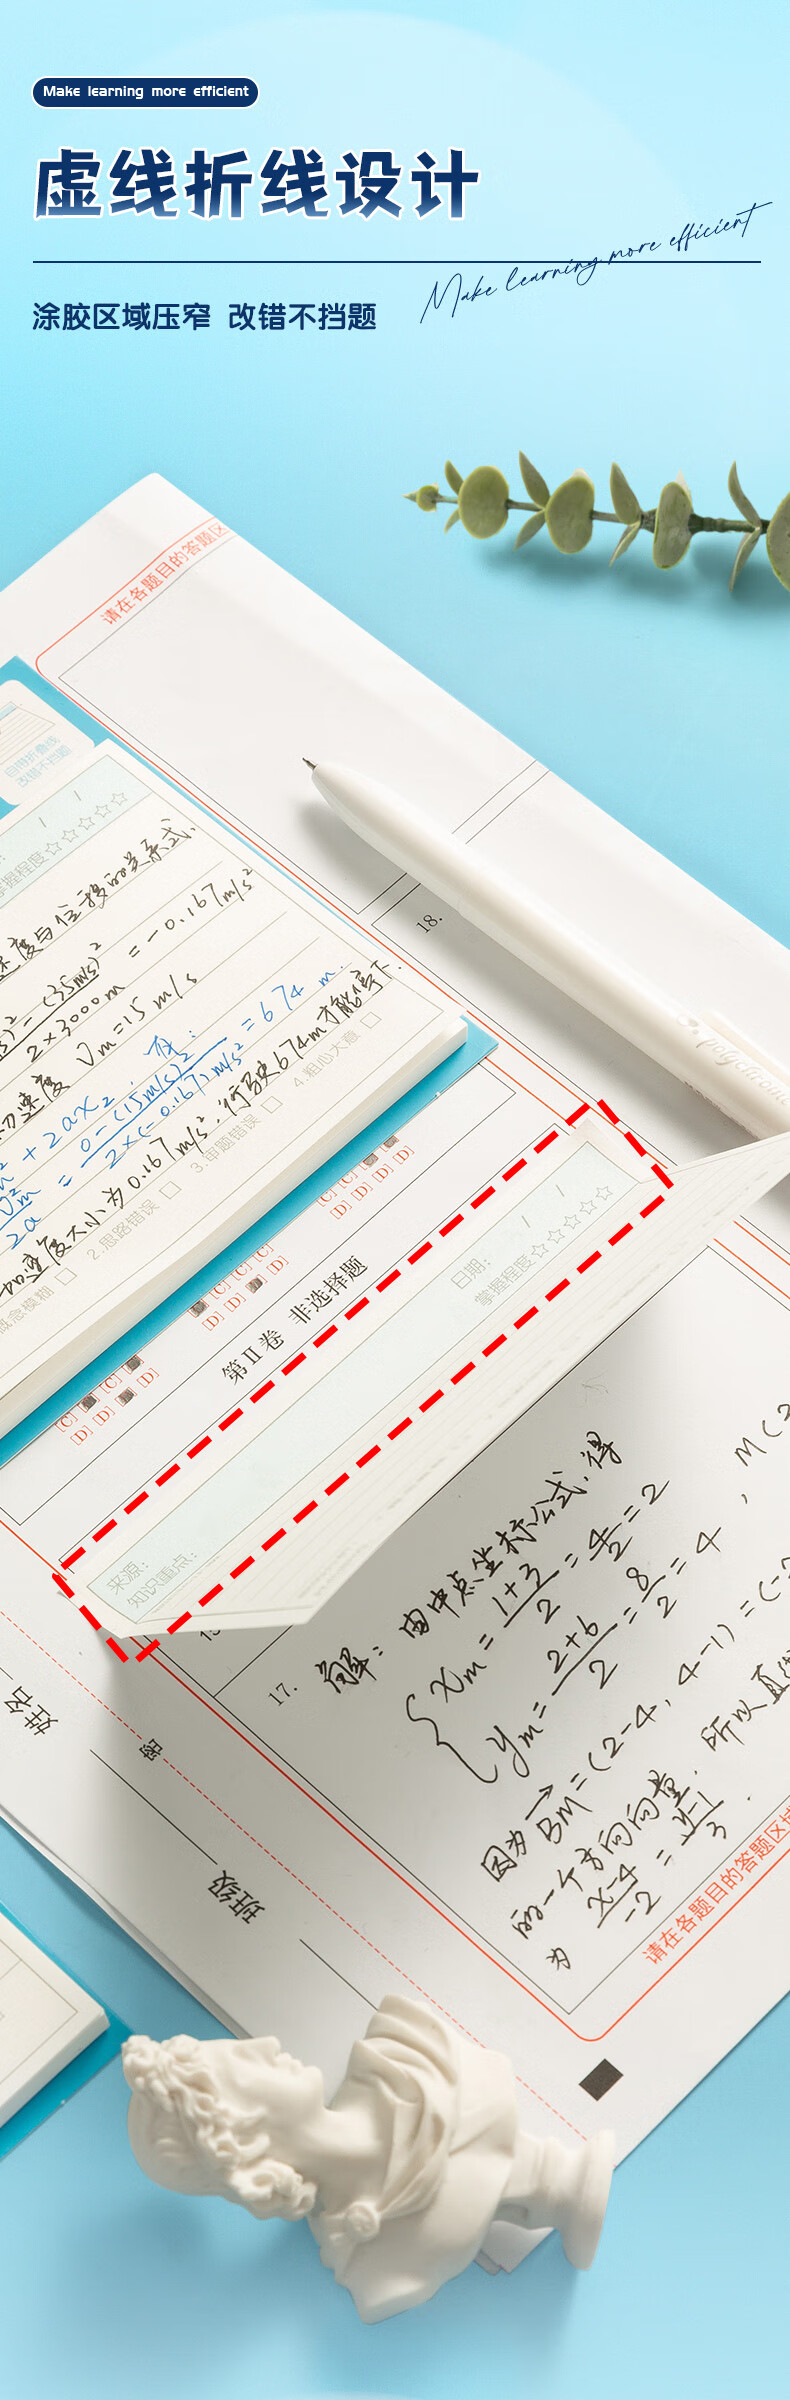 Make learning more efficient
虚线折线设计
Make learning more efficient
涂胶区域压窄 改错不挡题
请在各题目的答题区
自带折叠线
改错不挡题
掌握程度☆☆☆☆☆
速度与位移的关系式.
2×3000m = -0.167m/s²
速度 Vm=15 m/s
+ 2ax₂ . 有:
= 0-(15m/s)² / 2×(-0.167)m/s² = 674 m.
速度大小为0.167m/s². 行驶674m才能停下.
概念模糊 □ 2.思路错误 □ 3.审题错误 □ 4.粗心大意 □
18.
[C] [C] [C] [C]
[D] [D] [D] [D]
[C] [C] [C]
[D] [D] [D]
[C] [C]
[D] [D] [D]
第Ⅱ卷 非选择题
日期: / /
掌握程度☆☆☆☆☆
来源:
知识重点:
17.
解: 由中点坐标公式.得
xm = 1+3/2 = 4/2 = 2
ym = 2+6/2 = 8/2 = 4 , M(2
因为 BM=(2-4, 4-1) = (-2
的一个方向向量. 所以直线
为 x-4/-2 = y-1/3 .
请在各题目的答题区域
姓名
密
班级
polychrome